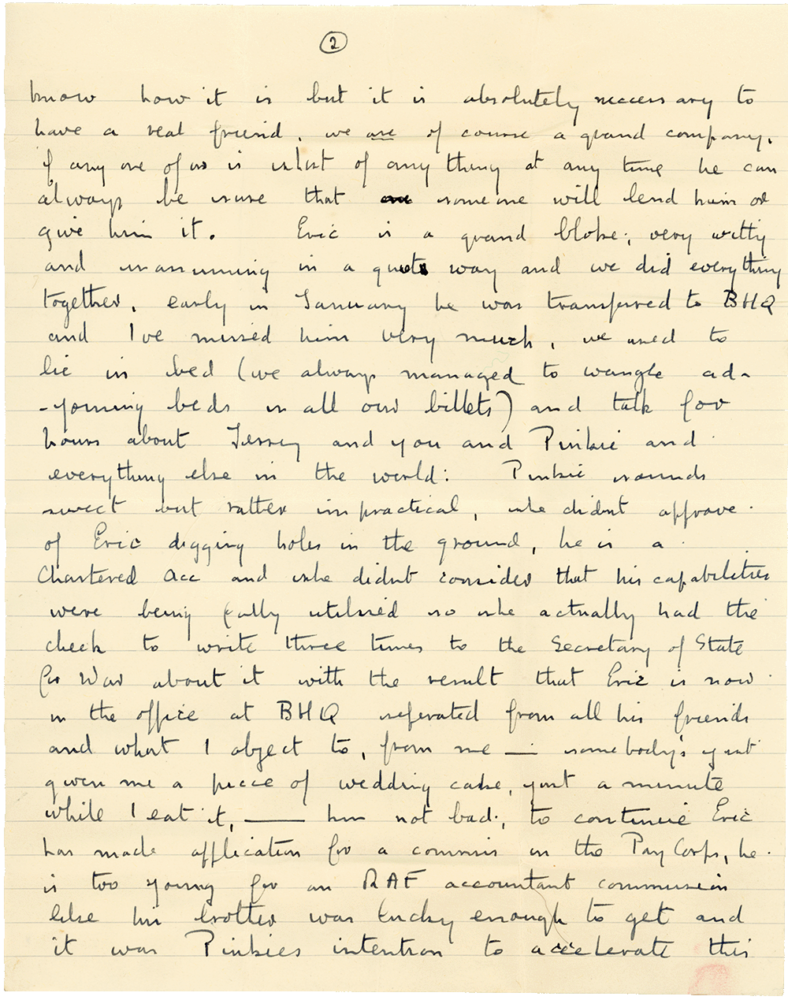 2
know how it is but it is absolutely neccessary to
have a real friend. we are of course a grand company.
if any one of us is short of any thing at any time he can
always be sure that some one will lend him or
give him it. Eric is a grand bloke; very witty
and unassuming in a quiet way and we did everything
together, early in January he was transferred to BHQ
and I've missed him very much, we used to
lie in bed (we always managed to wangle ad-
-yoining beds in all our billets) and talk for
hours about Jersey and you and Pinkie and
everything else in the world: Pinkie sounds
sweet but rather impractical, she didnt approve
of Eric digging holes in the ground, he is a
Chartered Acc and she didnt consider that his capabilities
were being fully utilised so she actually had the
cheek to write three times to the Secretary of State
for War about it with the result that Eric is now
in the office at BHQ seperated from all his friends
and what I object to, from me — somebody's just
given me a piece of wedding cake, just a minute
while I eat it, — hm not bad; to continue Eric
has made application for a commis in the Pay Corps, he
is too young for an RAF accountant commission
like his brother was lucky enough to get and
it was Pinkies intention to accelerate this